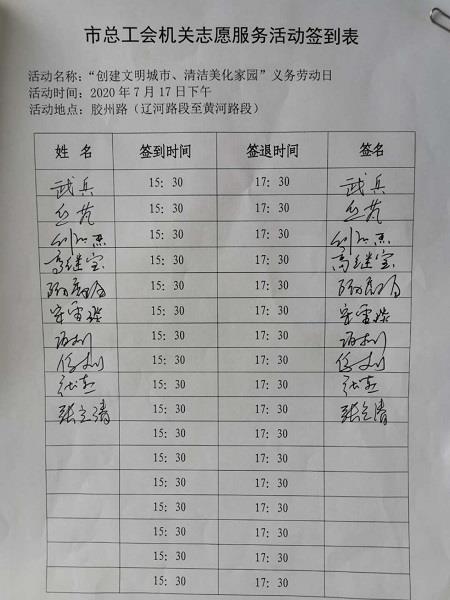 市总工会机关志愿服务活动签到表
活动名称：“创建文明城市、清洁美化家园”义务劳动日
活动时间：2020年7月17日下午
活动地点：胶州路（辽河路段至黄河路段）
姓 名 签到时间 签退时间 签名
武兵 15：30 17：30 武兵
15：30 17：30
15：30 17：30
高继宝 15：30 17：30 高继宝
15：30 17：30
15：30 17：30
15：30 17：30
15：30 17：30
15：30 17：30
张立清 15：30 17：30 张立清
15：30 17：30
15：30 17：30
15：30 17：30
15：30 17：30
15：30 17：30
15：30 17：30
15：30 17：30